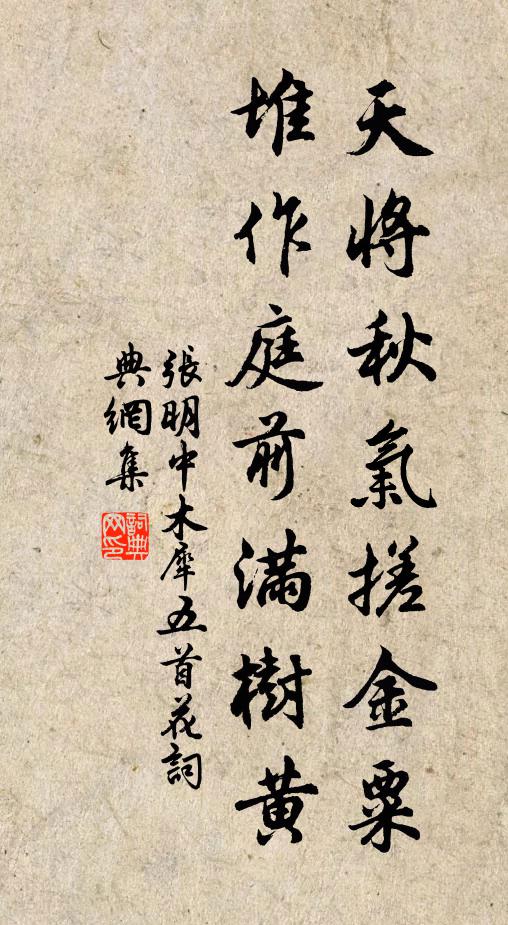 天將秋氣搓金粟
堆作庭前滿樹黃
張明中木犀五首花詞
典網集
詞典
网印